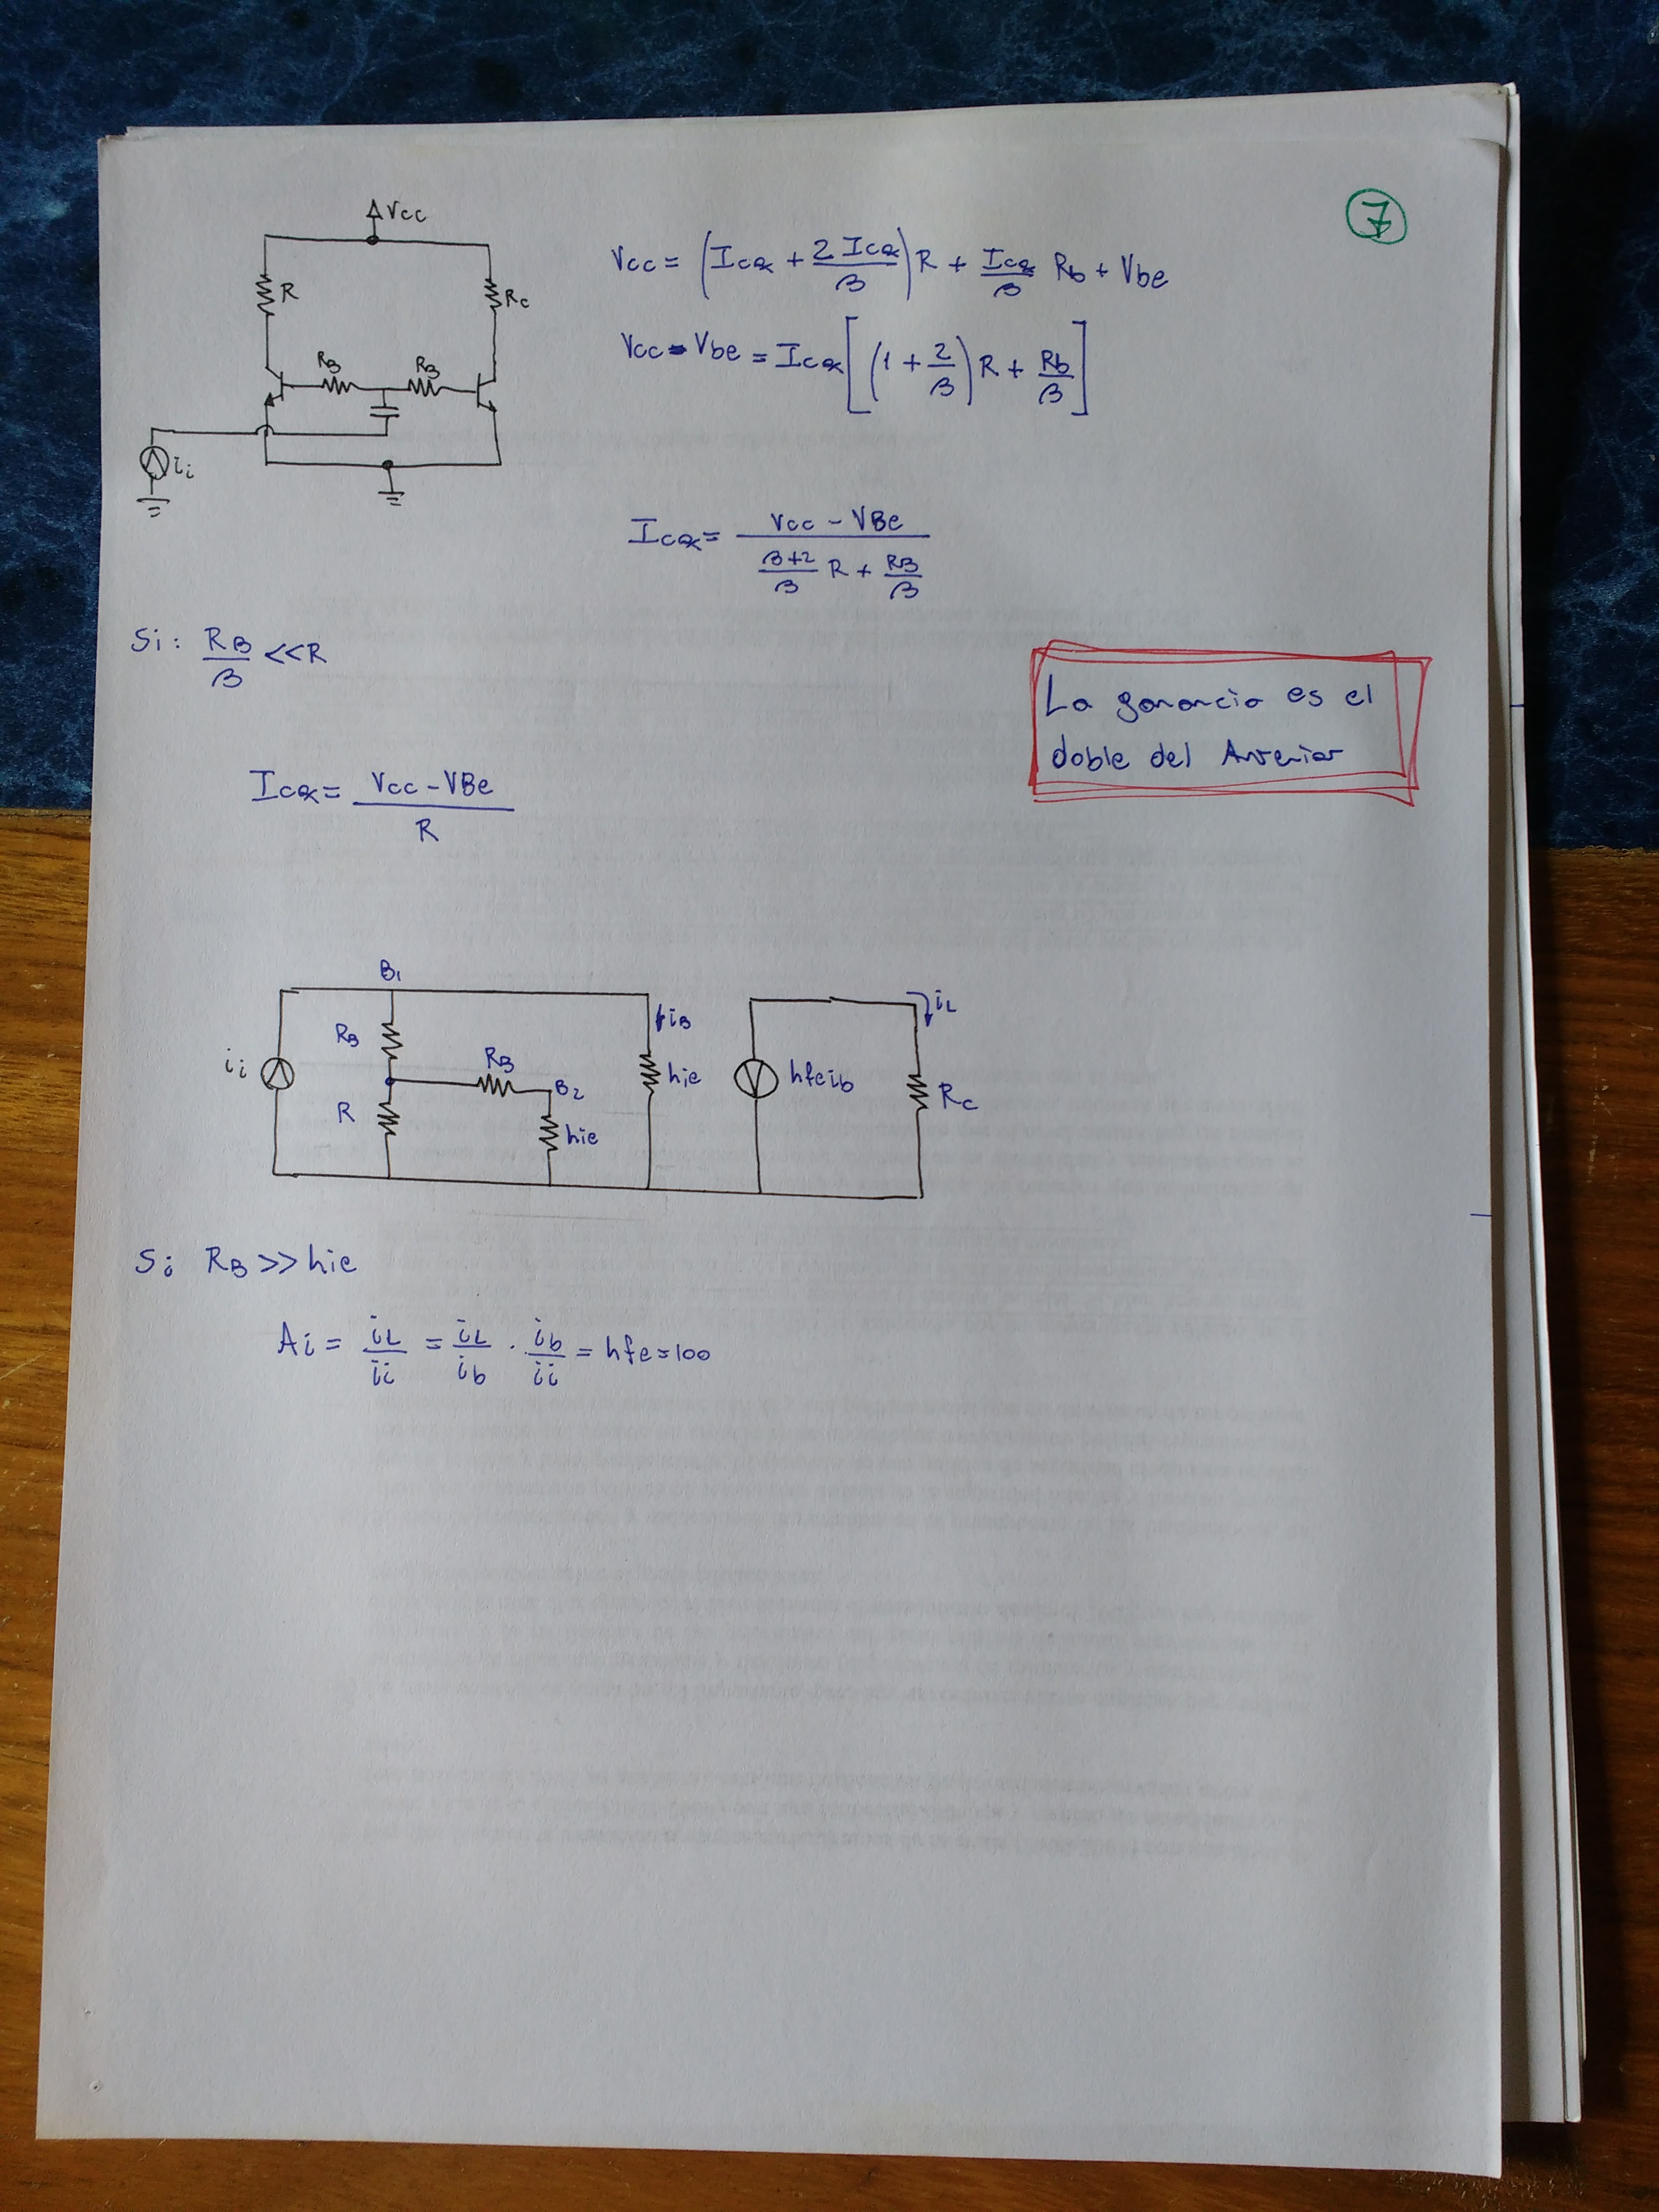 7
Vcc
R
Rc
RB
RB
ii
Vcc = (ICQ + 2 ICQ/β) R + ICQ/β Rb + Vbe
Vcc - Vbe = ICQ [(1 + 2/β) R + Rb/β]
ICQ = (Vcc - VBe) / (β+2/β R + RB/β)
Si: RB/β << R
La ganancia es el
doble del Anterior
ICQ = (Vcc - VBe) / R
B1
iL
iB
RB
RB
ii
hie
hfeib
B2
Rc
R
hie
Si RB >> hie
Ai = iL/ii = iL/ib · ib/ii = hfe = 100